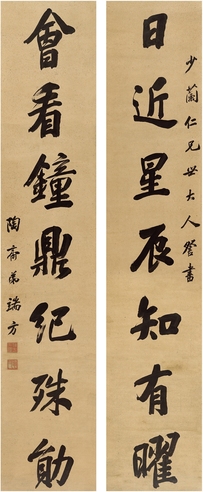 少蘭仁兄世大人督書
日近星辰知有曜
會看鐘鼎紀殊勛
陶齋弟端方